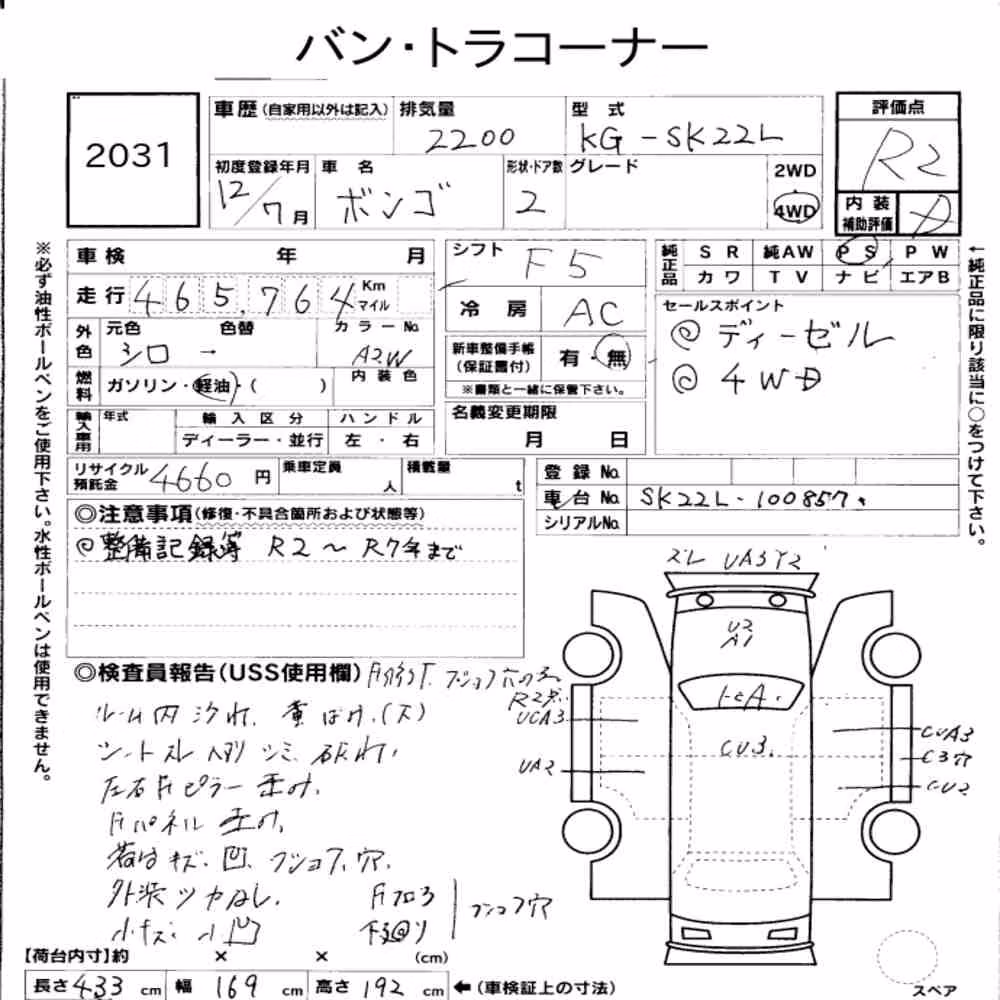 バン・トラコーナー
2031
車歴 (自家用以外は記入) 排気量 2200 型式 KG-SK22L 評価点 R2
初度登録年月 12/7月 車名 ボンゴ 形状・ドア数 2 グレード 2WD 4WD
内装補助評価 D
車検 年 月 シフト F5 純正品 SR 純AW PS PW
カワ TV ナビ エアB
走行 465,764 Km マイル 冷房 AC
セールスポイント
◎ ディーゼル
◎ 4WD
外色 元色 シロ → 色替 カラーNo. A2W
新車整備手帳(保証書付) 有・無
※書類と一緒に保管下さい。
燃料 ガソリン・軽油・( ) 内装色
名義変更期限 月 日
輸入車用 年式 輸入区分 ディーラー・並行 ハンドル 左・右
リサイクル預託金 4660円 乗車定員 人 積載量 t
登録No.
車台No. SK22L-100857
シリアルNo.
◎注意事項(修復・不具合箇所および状態等)
◎ 整備記録簿 R2〜R7年まで
※必ず油性ボールペンをご使用下さい。水性ボールペンは使用できません。
←純正品に限り該当に○をつけて下さい。
◎検査員報告(USS使用欄)
ルーム内 汚れ.
シートスレ シミ.
左右Fピラー
Fパネル
キズ. 凹. フショク. 穴.
小キズ 小凹
フショク穴
ズレ UA3Y2
U2
A1
CU3.
UCA3
UA2
CUA3
C3穴
CU2
【荷台内寸】約 × × (cm)
長さ433cm 幅169cm 高さ192cm ←(車検証上の寸法)
スペア